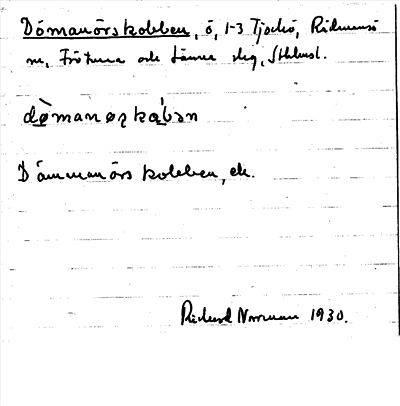 Dömanörskobben, ö, 1-3 Tjockö, Rådmansö
sn, Frötuna och Länna slg, Sthlmsl.
dø̀manøʂkåbən
Dömmanörs kobben, ek.
Rickard Norrman 1930.